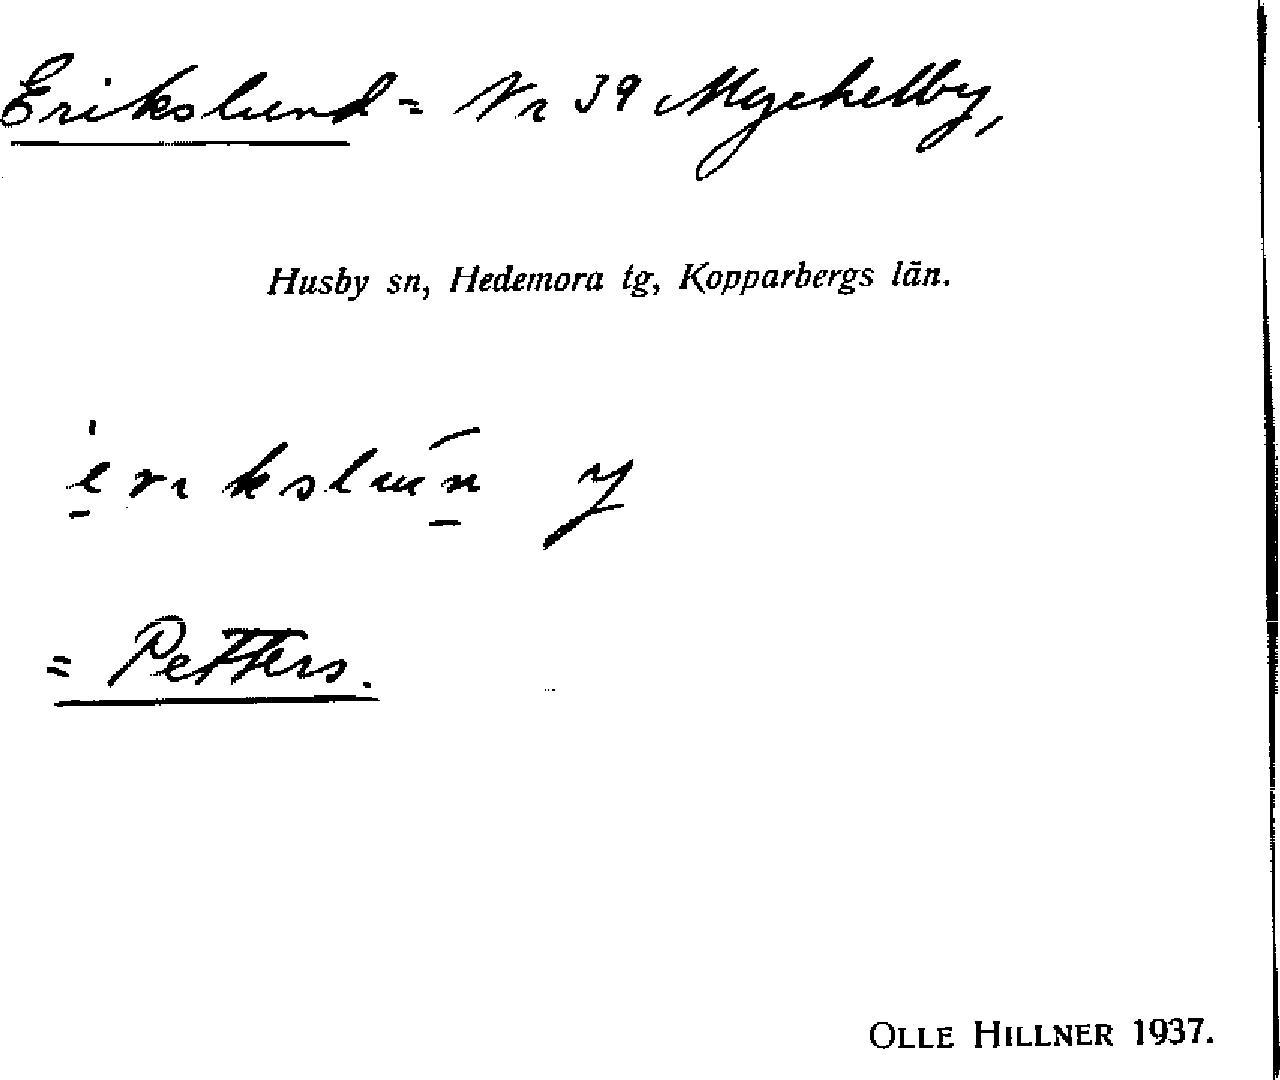 Erikslund = Nr 39 Myckelby,
Husby sn, Hedemora tg, Kopparbergs län.
= Petters.
OLLE HILLNER 1937.